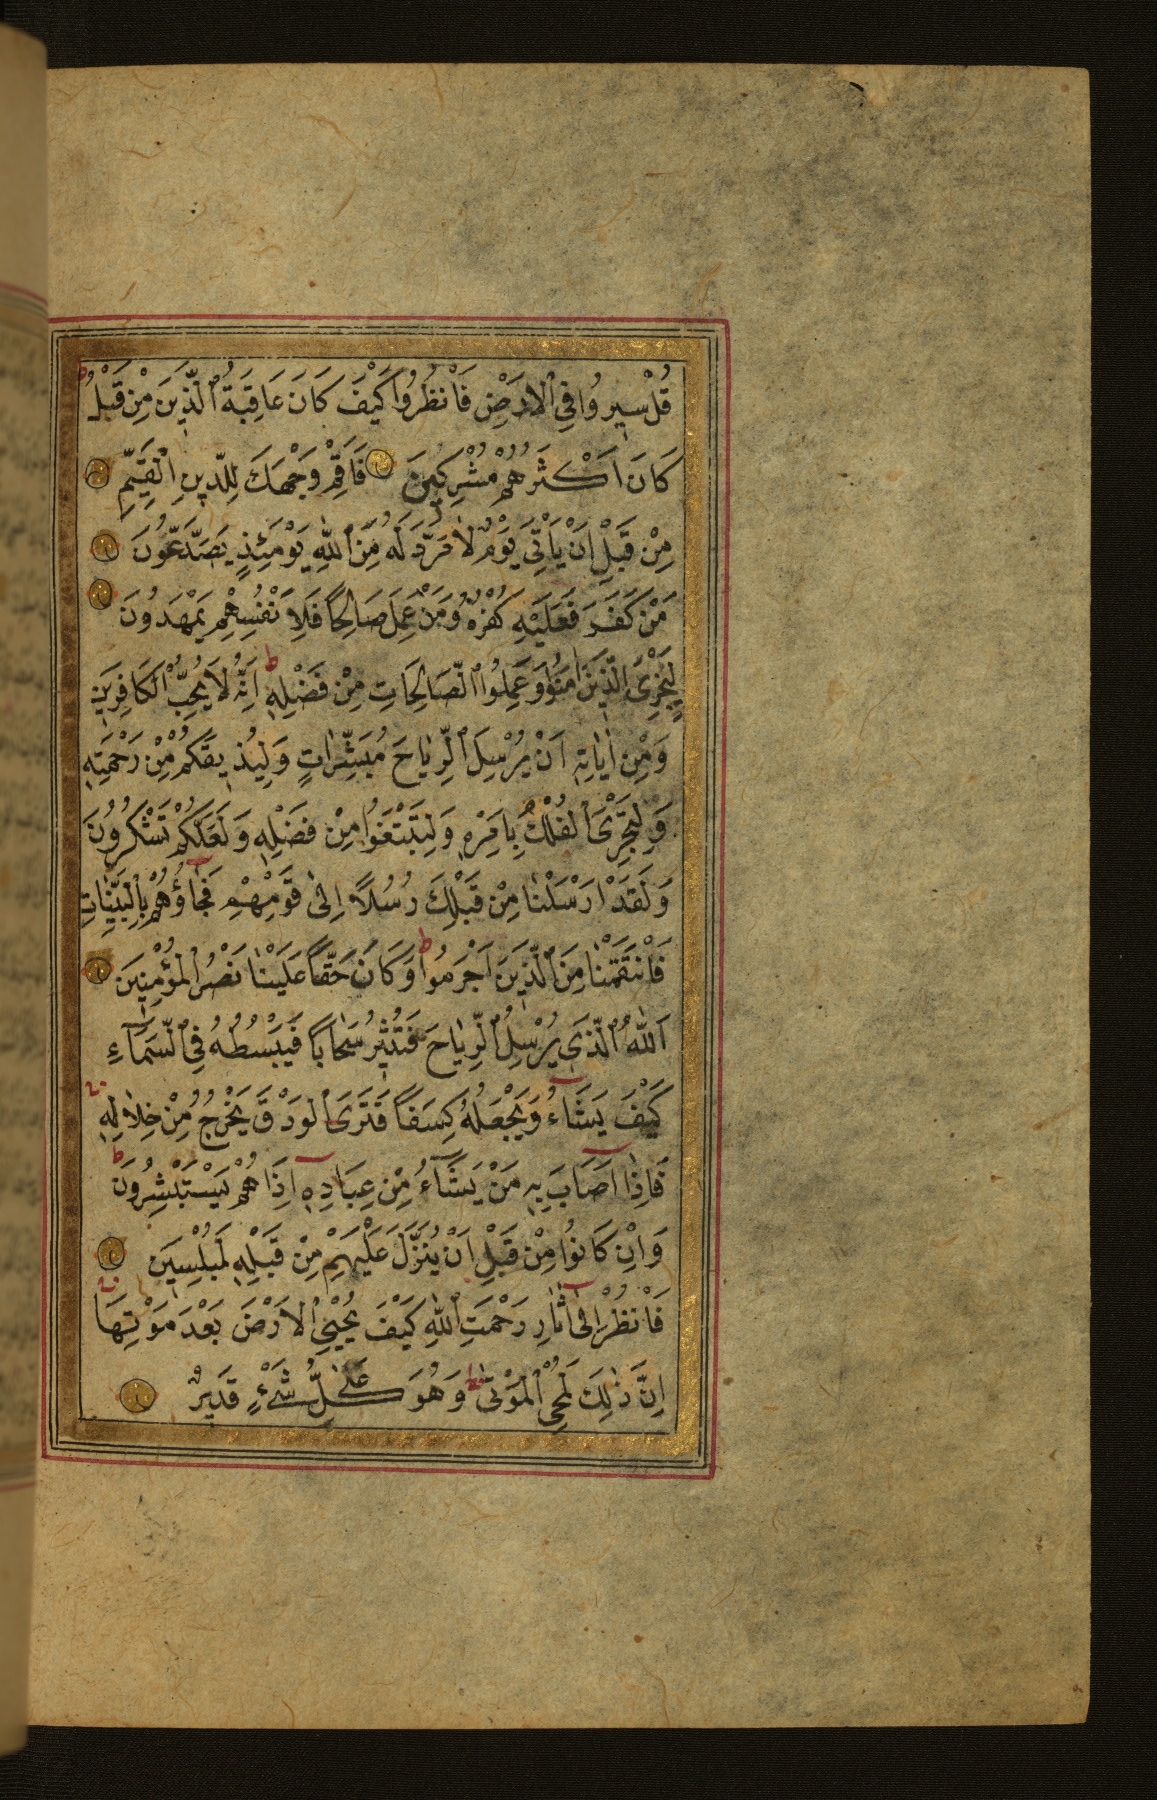 قُلْ سِيرُوا فِي ٱلْاَرْضِ فَانْظُرُوا كَيْفَ كَانَ عَاقِبَةُ ٱلَّذِينَ مِنْ قَبْلُ ط
كَانَ اَكْثَرُهُمْ مُشْرِكِينَ فَاَقِمْ وَجْهَكَ لِلدِّينِ الْقَيِّمِ
مِنْ قَبْلِ اَنْ يَاْتِيَ يَوْمٌ لَا مَرَدَّ لَهُ مِنَ ٱللهِ يَوْمَئِذٍ يَصَّدَّعُونَ
مَنْ كَفَرَ فَعَلَيْهِ كُفْرُهُ وَمَنْ عَمِلَ صَالِحًا فَلِاَنْفُسِهِمْ يَمْهَدُونَ
لِيَجْزِيَ الَّذِينَ اٰمَنُوا وَعَمِلُوا الصَّالِحَاتِ مِنْ فَضْلِهِ ط اِنَّهُ لَا يُحِبُّ الْكَافِرِينَ
وَمِنْ اٰيَاتِهِ اَنْ يُرْسِلَ ٱلرِّيَاحَ مُبَشِّرَاتٍ وَلِيُذِيقَكُمْ مِنْ رَحْمَتِهِ
وَلِتَجْرِيَ ٱلْفُلْكُ بِاَمْرِهِ وَلِتَبْتَغُوا مِنْ فَضْلِهِ وَلَعَلَّكُمْ تَشْكُرُونَ
وَلَقَدْ اَرْسَلْنَا مِنْ قَبْلِكَ رُسُلًا اِلٰى قَوْمِهِمْ فَجَاؤُهُمْ بِالْبَيِّنَاتِ
فَانْتَقَمْنَا مِنَ ٱلَّذِينَ اَجْرَمُوا ط وَكَانَ حَقًّا عَلَيْنَا نَصْرُ الْمُؤْمِنِينَ
اَللهُ ٱلَّذِي يُرْسِلُ ٱلرِّيَاحَ فَتُثِيرُ سَحَابًا فَيَبْسُطُهُ فِي ٱلسَّمَآءِ
كَيْفَ يَشَآءُ وَيَجْعَلُهُ كِسَفًا فَتَرَى ٱلْوَدْقَ يَخْرُجُ مِنْ خِلَالِهِ
فَاِذَا اَصَابَ بِهِ مَنْ يَشَآءُ مِنْ عِبَادِهِ اِذَا هُمْ يَسْتَبْشِرُونَ ط
وَاِنْ كَانُوا مِنْ قَبْلِ اَنْ يُنَزَّلَ عَلَيْهِمْ مِنْ قَبْلِهِ لَمُبْلِسِينَ
فَانْظُرْ اِلٰى اٰثَارِ رَحْمَتِ ٱللهِ كَيْفَ يُحْيِي ٱلْاَرْضَ بَعْدَ مَوْتِهَا
اِنَّ ذٰلِكَ لَمُحْيِ ٱلْمَوْتٰى وَهُوَ عَلٰى كُلِّ شَيْءٍ قَدِيرٌ